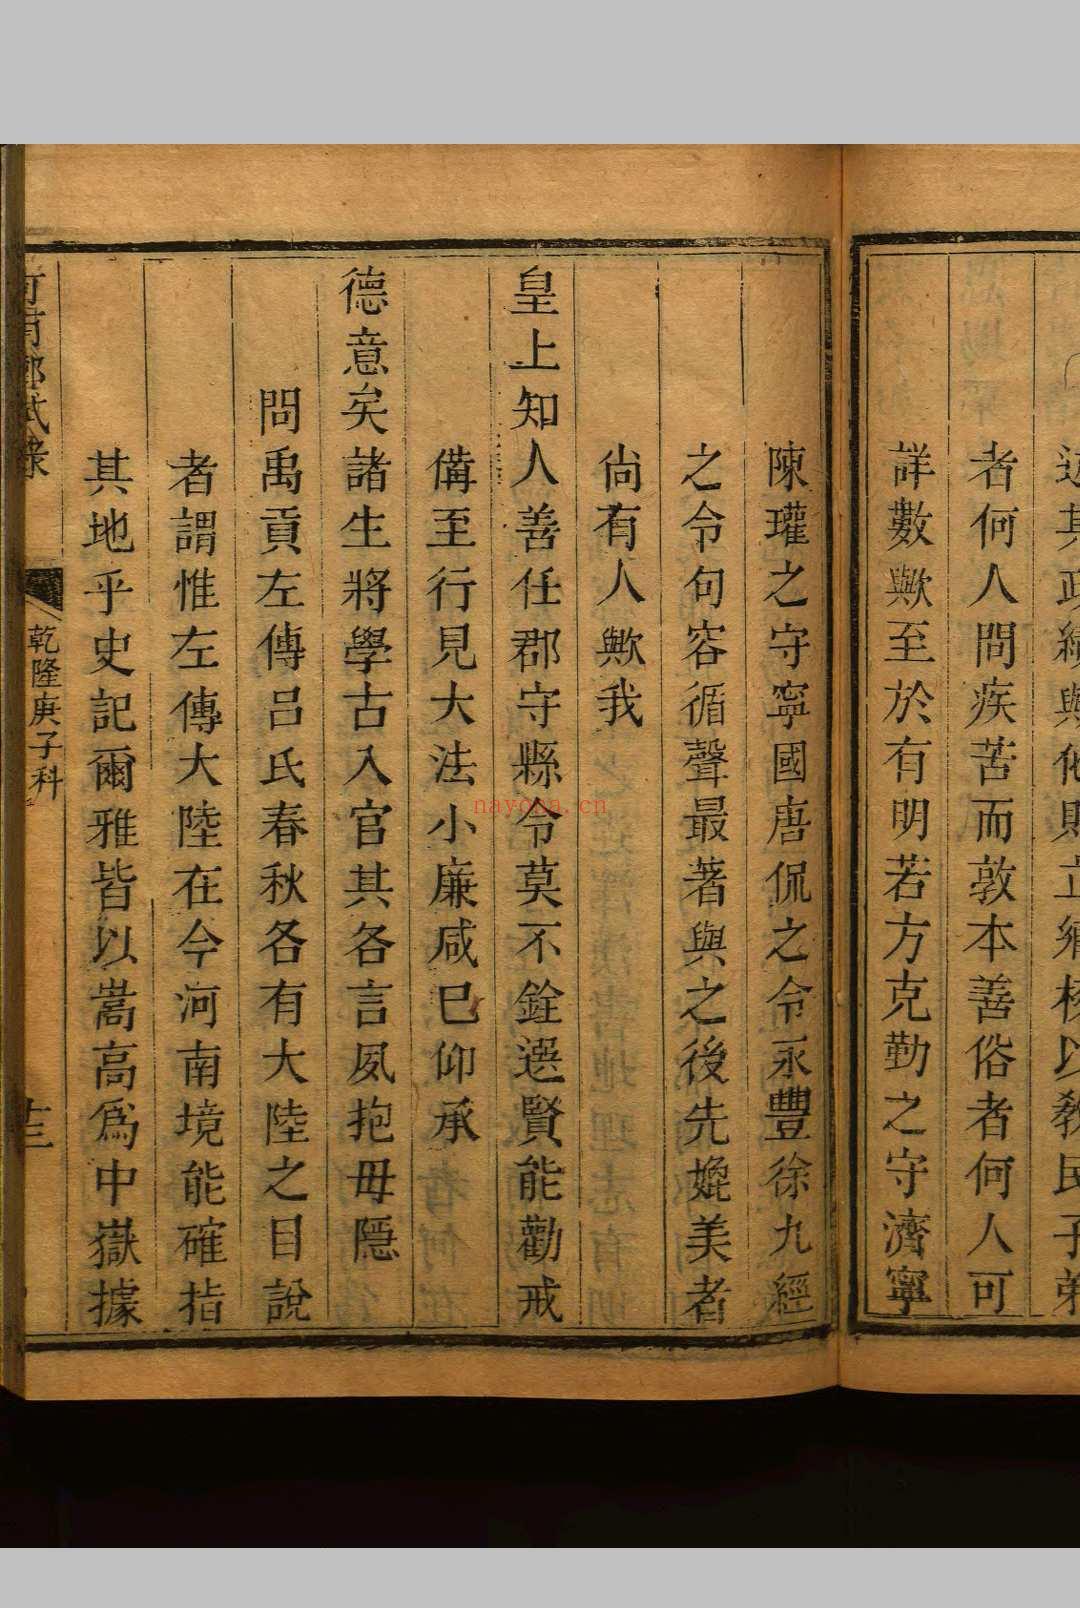 者何人問疾苦而敦本善俗者何人可
詳數歟至於有明若方克勤之守濟寧
陳瓘之守寧國唐侃之令永豐徐九經
之令句容循聲最著與之後先媲美者
尙有人歟我
皇上知人善任郡守縣令莫不銓選賢能勸戒
備至行見大法小廉咸巳仰承
德意矣諸生將學古入官其各言夙抱毋隱
問禹貢左傳吕氏春秋各有大陸之目說
者謂惟左傳大陸在今河南境能確指
其地乎史記爾雅皆以嵩高爲中嶽據
乾隆庚子科
nayona.cn